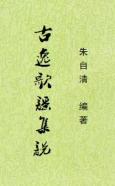 朱自清 编著
古逸歌謡集説